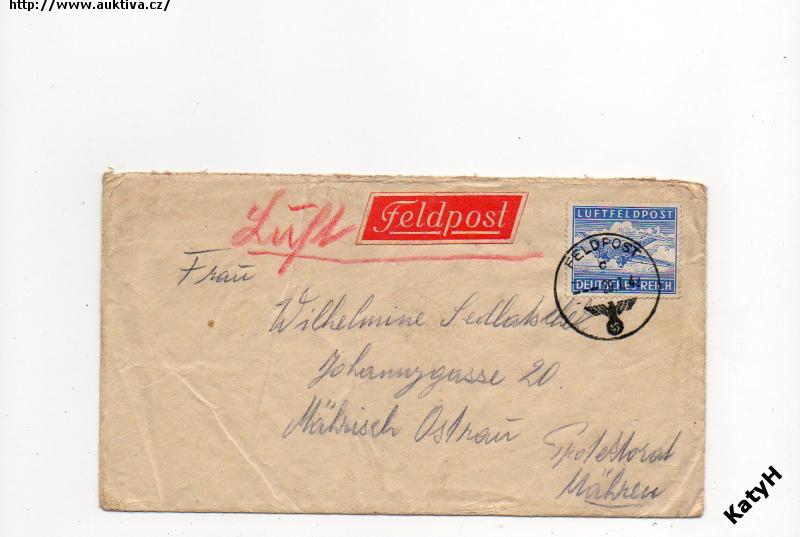 http://www.auktiva.cz/
Luft
Feldpost
LUFTFELDPOST
DEUTSCHES REICH
FELDPOST
Frau
Wilhelmine
Johannygasse 20.
Mährisch Ostrau
Protektorat
Mähren
KatyH